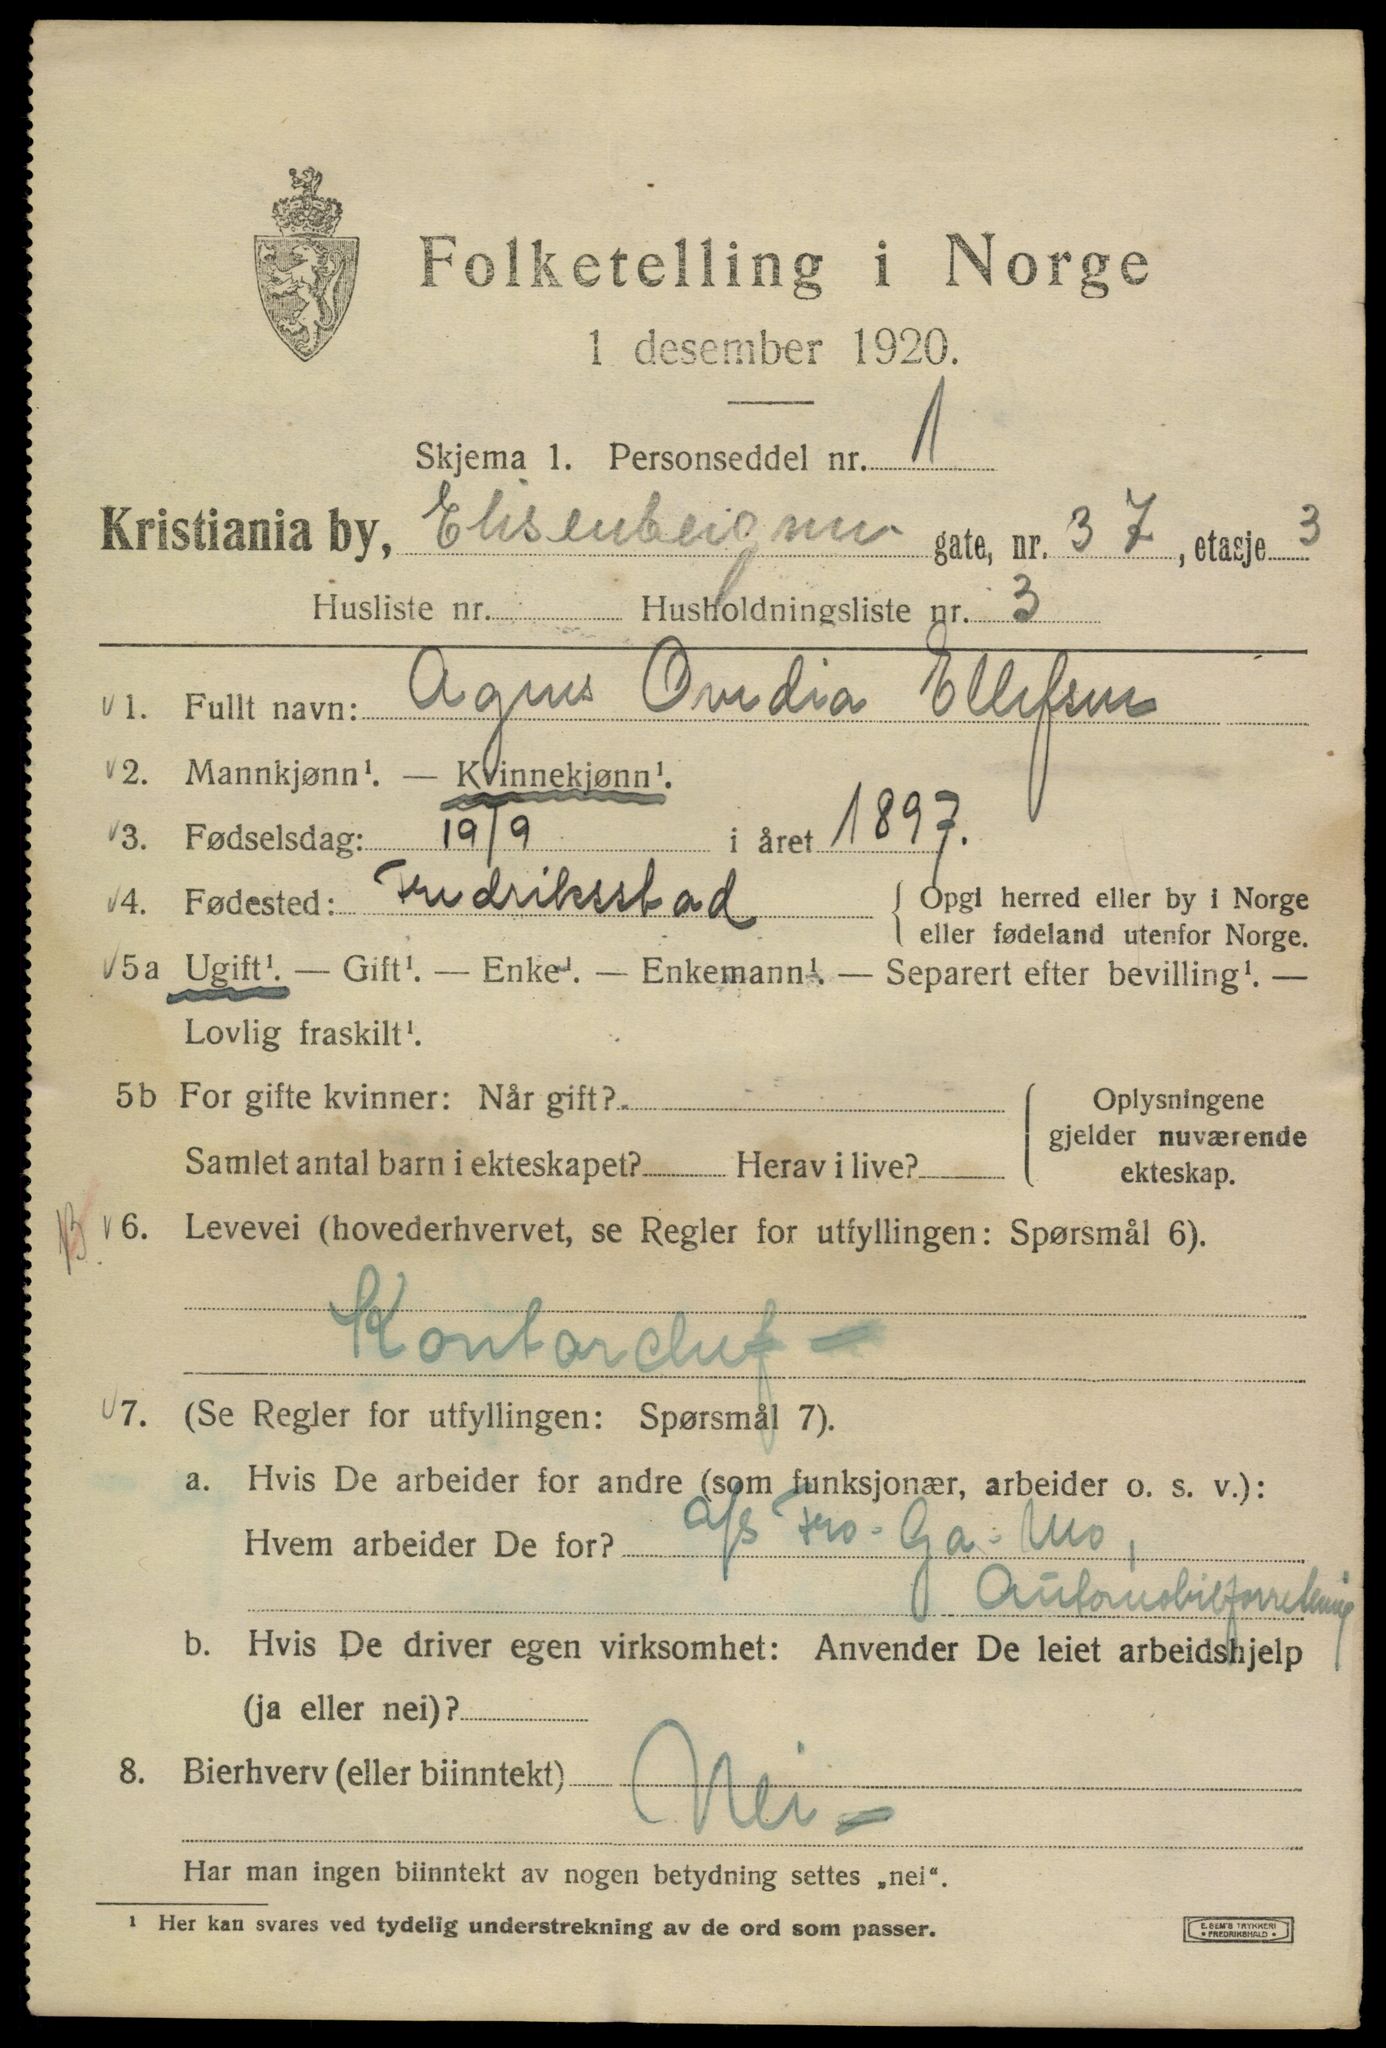 Folketelling i Norge
1 desember 1920.
Skjema 1. Personseddel nr. 1
Kristiania by, Elisenbergvn gate, nr. 37, etasje 3
Husliste nr. Husholdningsliste nr. 3
1. Fullt navn: Agnes Ovidia Ellefsen
2. Mannkjønn¹. — Kvinnekjønn¹.
3. Fødselsdag: 19/9 i året 1897.
4. Fødested: Fredriksstad { Opgi herred eller by i Norge
eller fødeland utenfor Norge.
5a Ugift¹. — Gift¹. — Enke¹. — Enkemann¹. — Separert efter bevilling¹. —
Lovlig fraskilt¹.
5b For gifte kvinner: Når gift?
Samlet antal barn i ekteskapet? Herav i live?
{ Oplysningene
gjelder nuværende
ekteskap.
6. Levevei (hovederhvervet, se Regler for utfyllingen: Spørsmål 6).
Kontorchef –
7. (Se Regler for utfyllingen: Spørsmål 7).
a. Hvis De arbeider for andre (som funksjonær, arbeider o. s. v.):
Hvem arbeider De for? A/S Fro-Ga-Mo,
Automobilforretning
b. Hvis De driver egen virksomhet: Anvender De leiet arbeidshjelp
(ja eller nei)?
8. Bierhverv (eller biinntekt)
Nei –
Har man ingen biinntekt av nogen betydning settes „nei“.
¹ Her kan svares ved tydelig understrekning av de ord som passer.
E. SEM'S TRYKKERI
• FREDRIKSHALD •